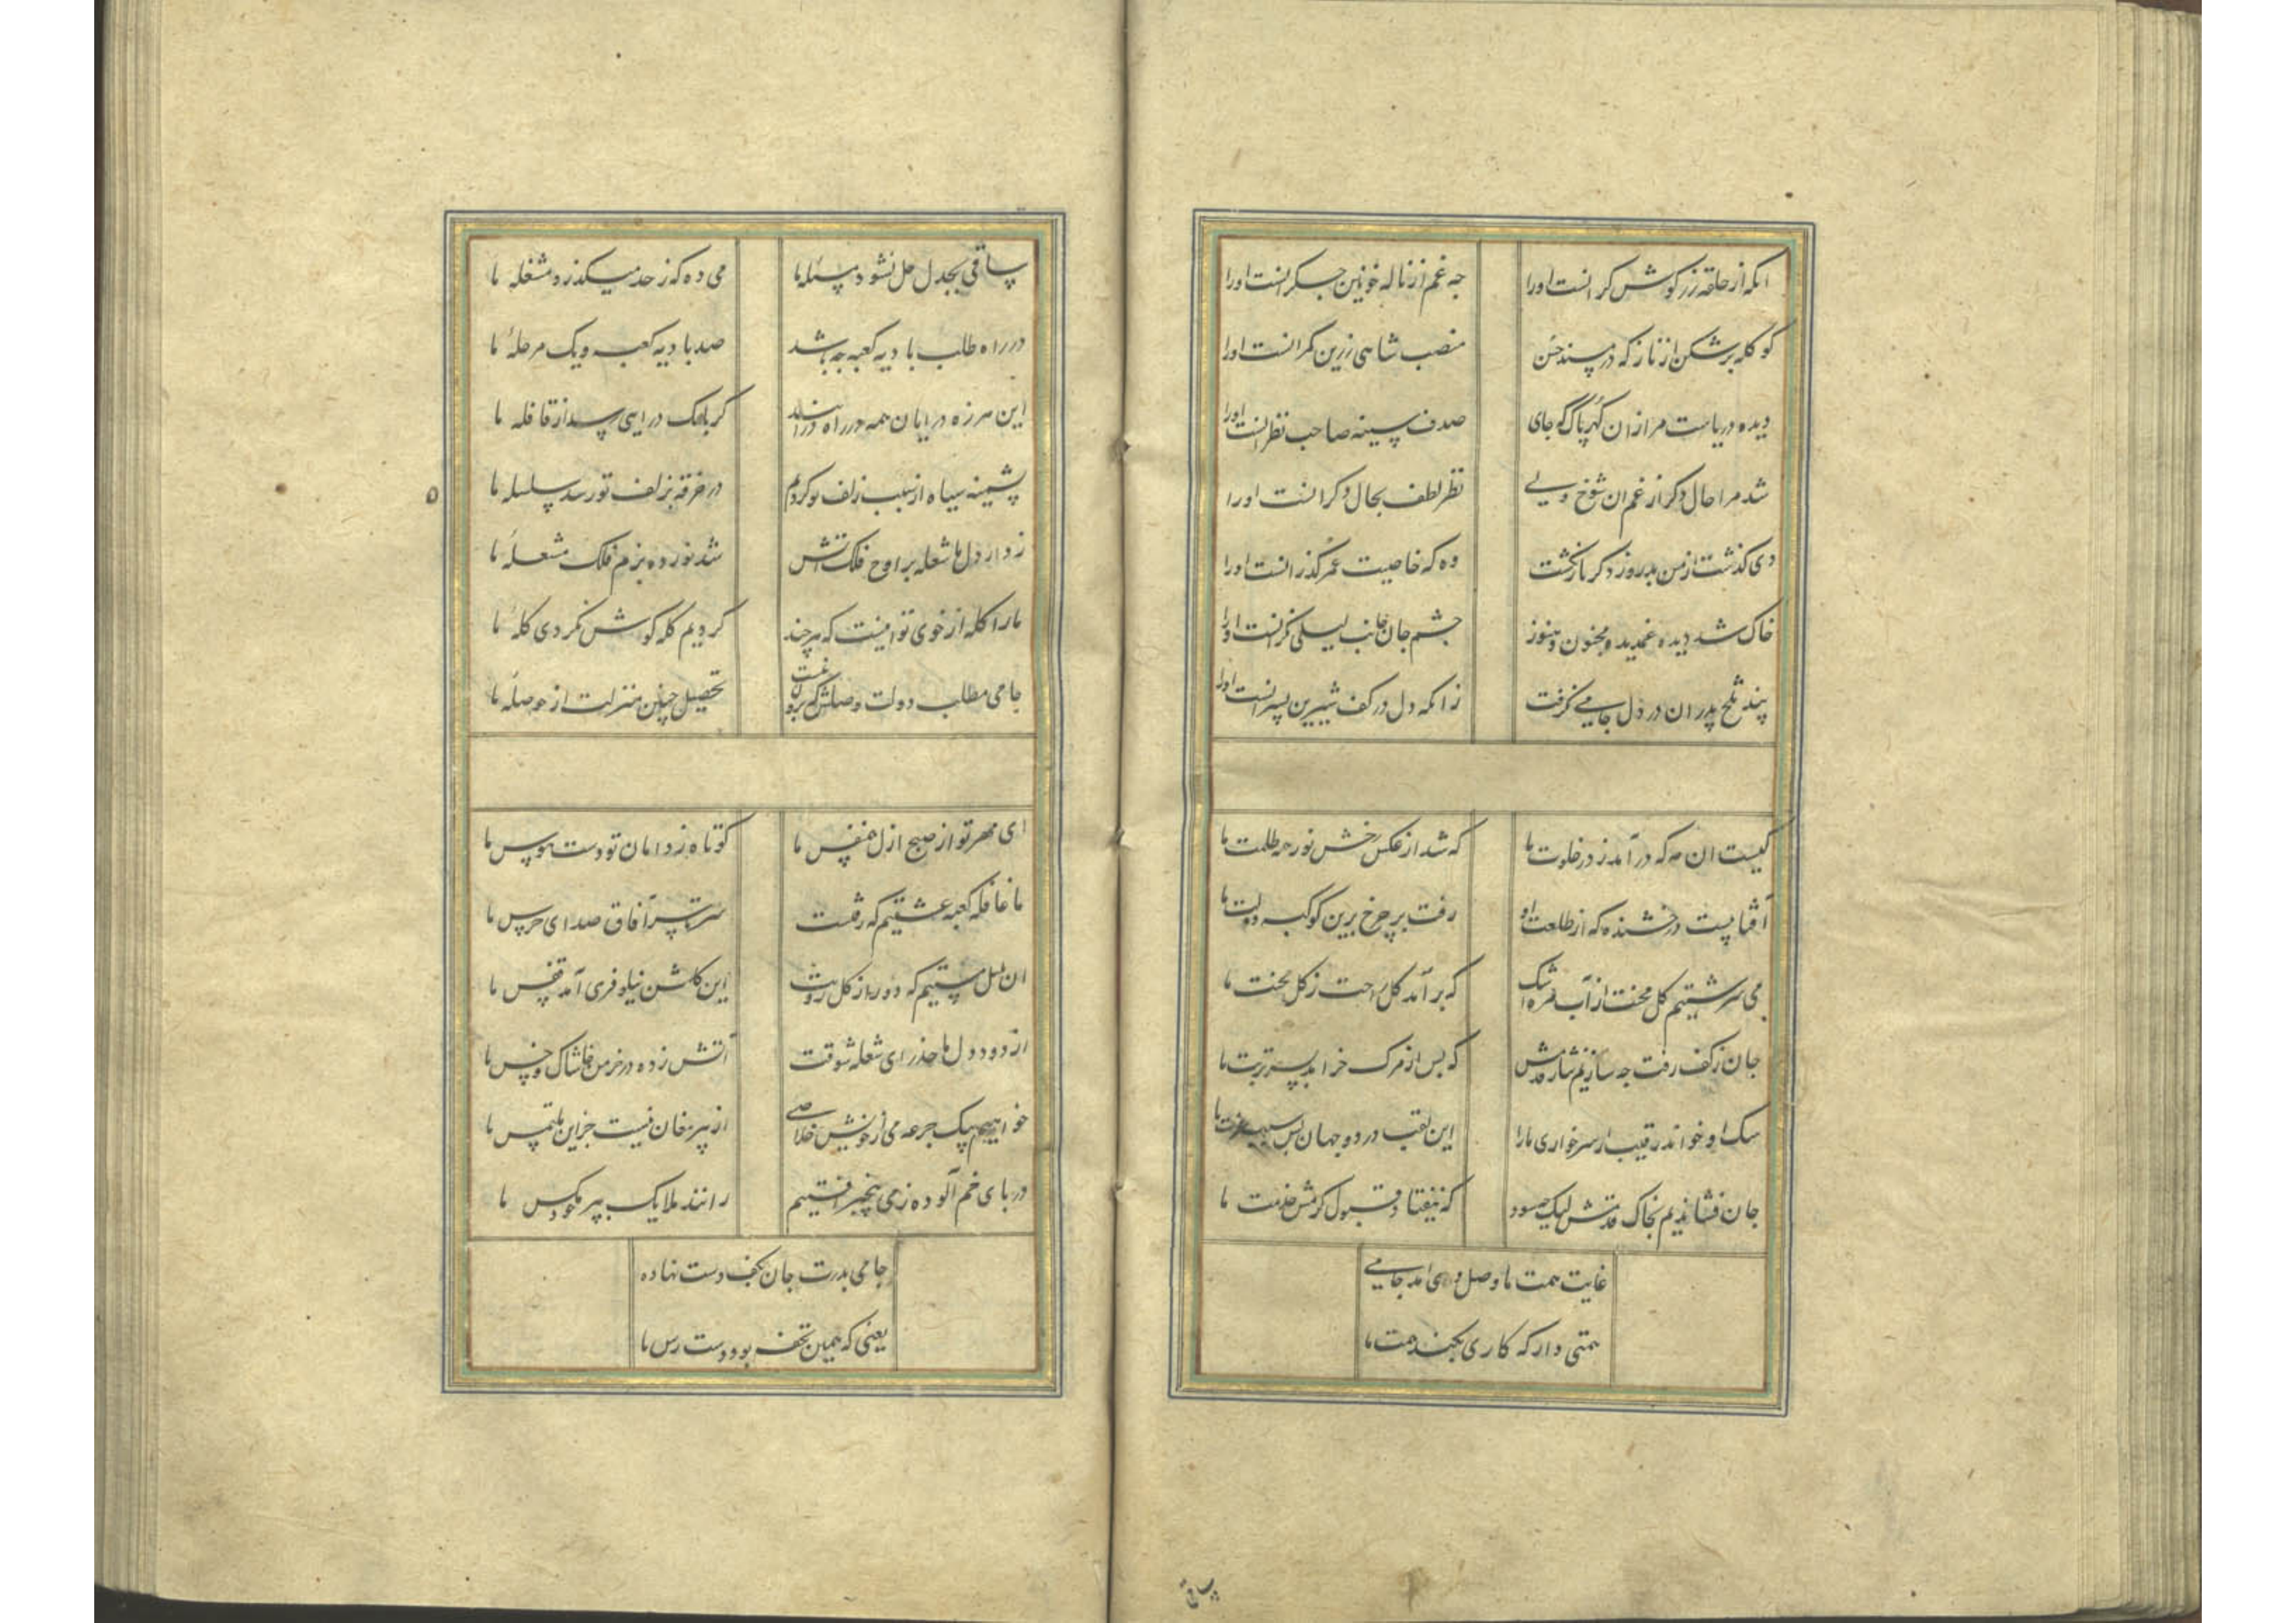 انکه از حلقه زر کوش کرانست اورا
چه غم از ناله خونین جکرانست اورا
کو کله برشکن از ناز که در مسند حسن
منصب شاهی زرین کمرانست اورا
دیده دریاست مرا زان کهر پاک که جای
صدف سینه صاحب نظرانست اورا
شد مرا حال دکر از غم ان شوخ ولی
نظر لطف بحال دکرانست اورا
دی کذشت از من بدروز دکر بازنکشت
وه که خاصیت عمر کذرانست اورا
خاک شد دیده غمدیده مجنون و هنوز
چشم جان جانب لیلی نکرانست اورا
پند تلخ پدران در دل جامی نکرفت
زانکه دل در کف شیرین پسرانست اورا
کیست ان مه که درآمد ز در خلوت ما
که شد از عکس رخش نور همه ظلمت ما
آفتابیست درخشنده که از طلعت او
رفت بر چرخ برین کوکبه دولت ما
می سرشتیم کل محنت از آب مژه اشک
که برآمد کل راحت ز کل محنت ما
جان ز کف رفت چه سازیم نثار قدمش
که پس از مرک خرامد بسر تربت ما
سک او خواند رقیب از سر خواری مارا
این لقب در دو جهان بس سبب عزت ما
جان فشاندیم بخاک قدمش لیک چه سود
که نیفتاد قبول کرمش خدمت ما
غایت همت ما وصل وی امد جامی
همتی دار که کاری بکند همت ما
ساقی
ساقی بجدل حل نشود مسئله ما
می ده که ز حد میکذرد مشغله ما
در راه طلب بادیه کعبه چه باشد
صد بادیه کعبه و یک مرحله ما
این هرزه درایان همه در راه درآیند
کر بانک درایی رسد از قافله ما
پشمینه سیاه از سبب زلف تو کردیم
در خرقه بزلف تو رسد سلسله ما
زد از دل ما شعله بر اوج فلک آتش
شد نورده بزم فلک مشعله ما
مارا کله از خوی تو اینست که هر چند
کردیم کله کوش نکردی کله ما
جامی مطلب دولت وصلش که برونست
تحصیل چنین منزلت از حوصله ما
ای مهر تو از صبح ازل هم نفس ما
کوتاه ز دامان تو دست هوس ما
ما قافله کعبه عشقیم که رفتست
سرتاسر آفاق صدای جرس ما
ان بلبل مستیم که دور از کل رویت
این کلشن نیلوفری آمد قفس ما
از دود دل ما حذر ای شعله شوقت
آتش زده در خرمن خاشاک و خس ما
خواهیم بیک جرعه می از خویش خلاصی
از پیر مغان نیست جز این ملتمس ما
در پای خم آلوده ز می بیخبر افتیم
رانند ملایک بپر مکس ما
جامی بدرت جان بکف دست نهاده
یعنی که همین تحفه بود دست رس ما